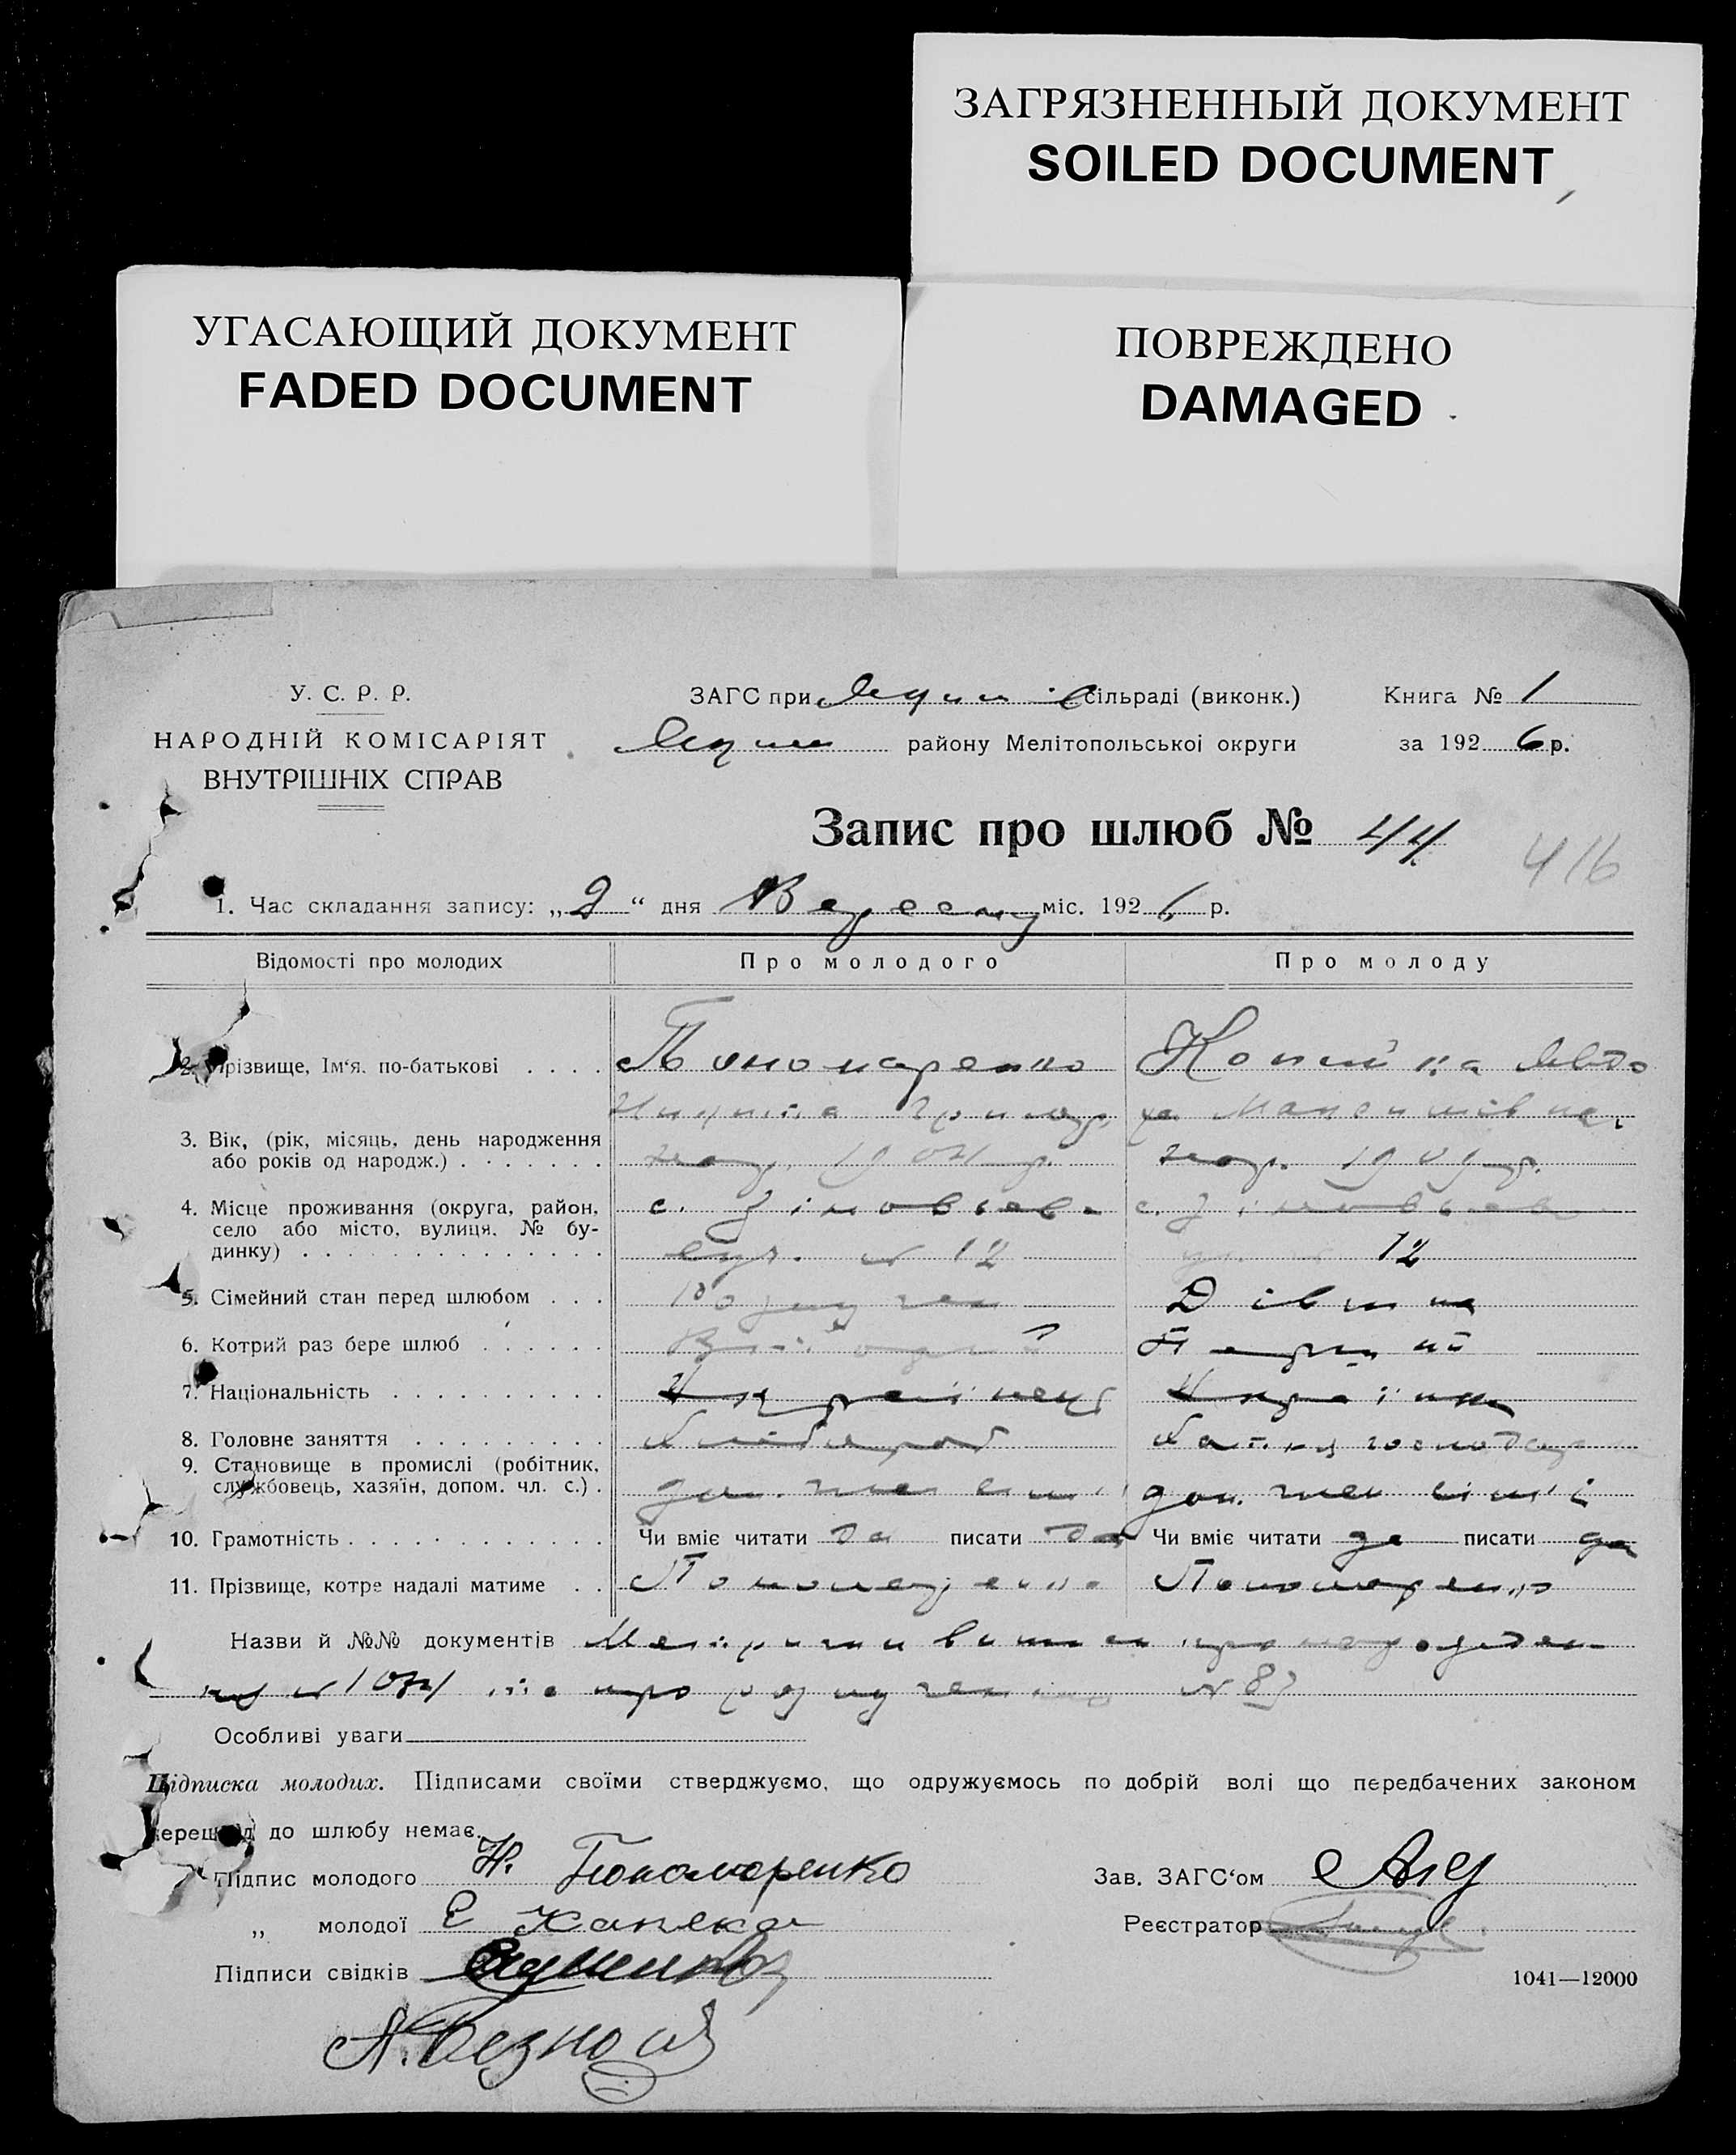 ЗАГРЯЗНЕННЫЙ ДОКУМЕНТ
SOILED DOCUMENT
УГАСАЮЩИЙ ДОКУМЕНТ
FADED DOCUMENT
ПОВРЕЖДЕНО
DAMAGED
У. С. Р. Р.
НАРОДНІЙ КОМІСАРІЯТ
ВНУТРІШНІХ СПРАВ
ЗАГС при сільраді (виконк.) Книга № 1
району Мелітопольської округи за 1926 р.
Запис про шлюб № 44
416
1. Час складання запису: „2“ дня Вересня міс. 1926 р.
Відомості про молодих Про молодого Про молоду
2. Прізвище, Ім‘я. по-батькові . . . . Пономаренко Копійка Євдо
Микита Григор. ха Максимівна
3. Вік, (рік, місяць, день народження
або років од народж.) . . . . . . . нар. 1904 р. нар. 1909 р.
4. Місце проживання (округа, район, с. Зіновьєва с. Зіновьєва
село або місто, вулиця. № бу-
динку) . . . . . . . . . . . . . . вул. № 12 12
5. Сімейний стан перед шлюбом . . . Розлучен Дівчина
6. Котрий раз бере шлюб . . . . . . Другий Перший
7. Національність . . . . . . . . . . Українець Українка
8. Головне заняття . . . . . . . . . Хлібороб Хатня господар
9. Становище в промислі (робітник,
службовець, хазяїн, допом. чл. с.) . доп. член сім'ї доп. член сім'ї
10. Грамотність . . . . . . . . . . . . Чи вміє читати да писати да Чи вміє читати да писати да
11. Прізвище, котре надалі матиме . . Пономаренко Пономаренко
Назви й №№ документів Метричні витяги про народжен
ня № 104 та про розлучення № 83
Особливі уваги
Підписка молодих. Підписами своїми стверджуємо, що одружуємось по добрій волі що передбачених законом
перешкод до шлюбу немає.
Підпис молодого Н. Пономаренко Зав. ЗАГС‘ом
„ молодої Е Капека Реєстратор
Підписи свідків
1041—12000
А. Безнос